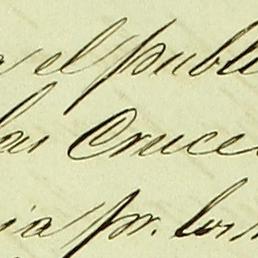 el publi
las Cruces
ia pr. los